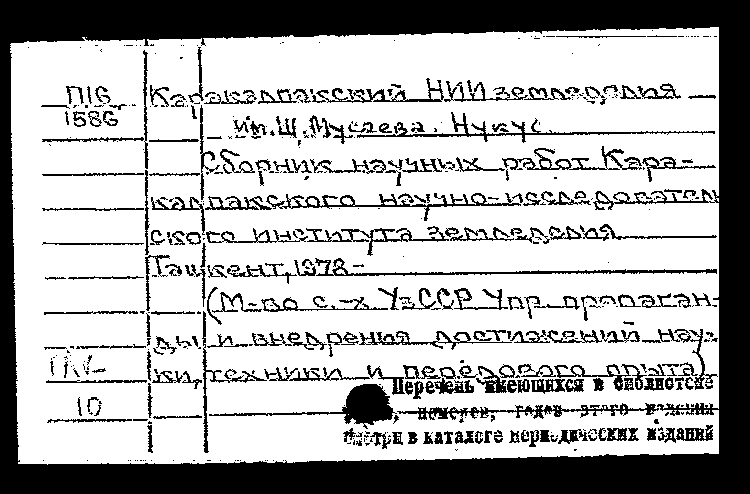 П16 Каракалпакский НИИ земледелия
1586 им. Ш. Мусаева. Нукус.
Сборник научных работ Кара-
калпакского научно-исследователь
ского института земледелия
Ташкент, 1978-
(М-во с.-х УзССР Упр. пропаган-
ды и внедрения достижений нау-
ки, техники и передового опыта)
10
Перечень имеющихся в библиотеке
номеров, годов этого издания
смотри в каталоге периодических изданий